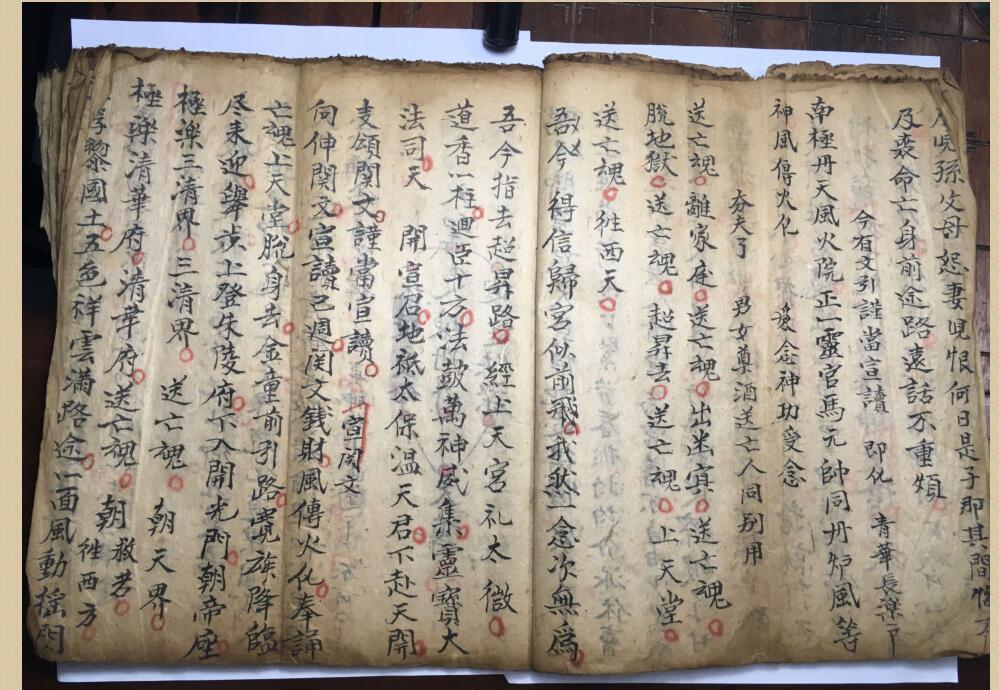 及喪命亡身前途路遠話不重煩
今有文引謹當宣讀 即化 青華長樂了
南極丹天風火院正一靈官馬元帥同丹炉風等
神風傳火化 愛念神功愛念
夯夫了 男女奠酒送亡人同别用
送亡魂離家庭送亡魂出坐寘送亡魂
脱地獄送亡魂超昇去送亡魂上天堂
送亡魂徃西天
吾今得信歸宮 前飛我然一念次無為
吾今指去超昇路經上天宮礼太微
道香一炷迴臣十方法鼓萬神威集靈寶大
法司天 開宣召地祇太保温天君下赴天開
支頌関文謹當宣讀 宣関文
向伸関文宣讀已週関文钱財風傳火化奉誦
亡魂上天堂脱身去金童前引路寛族降臨
尽来迎舉步上登朱陵府下入開光門朝帝座
極樂三清界三清界 送亡魂 朝天界
極樂清華府清華府送亡魂 朝救苦 徃西方
黎國土五色祥雲滿路途一面風動揺